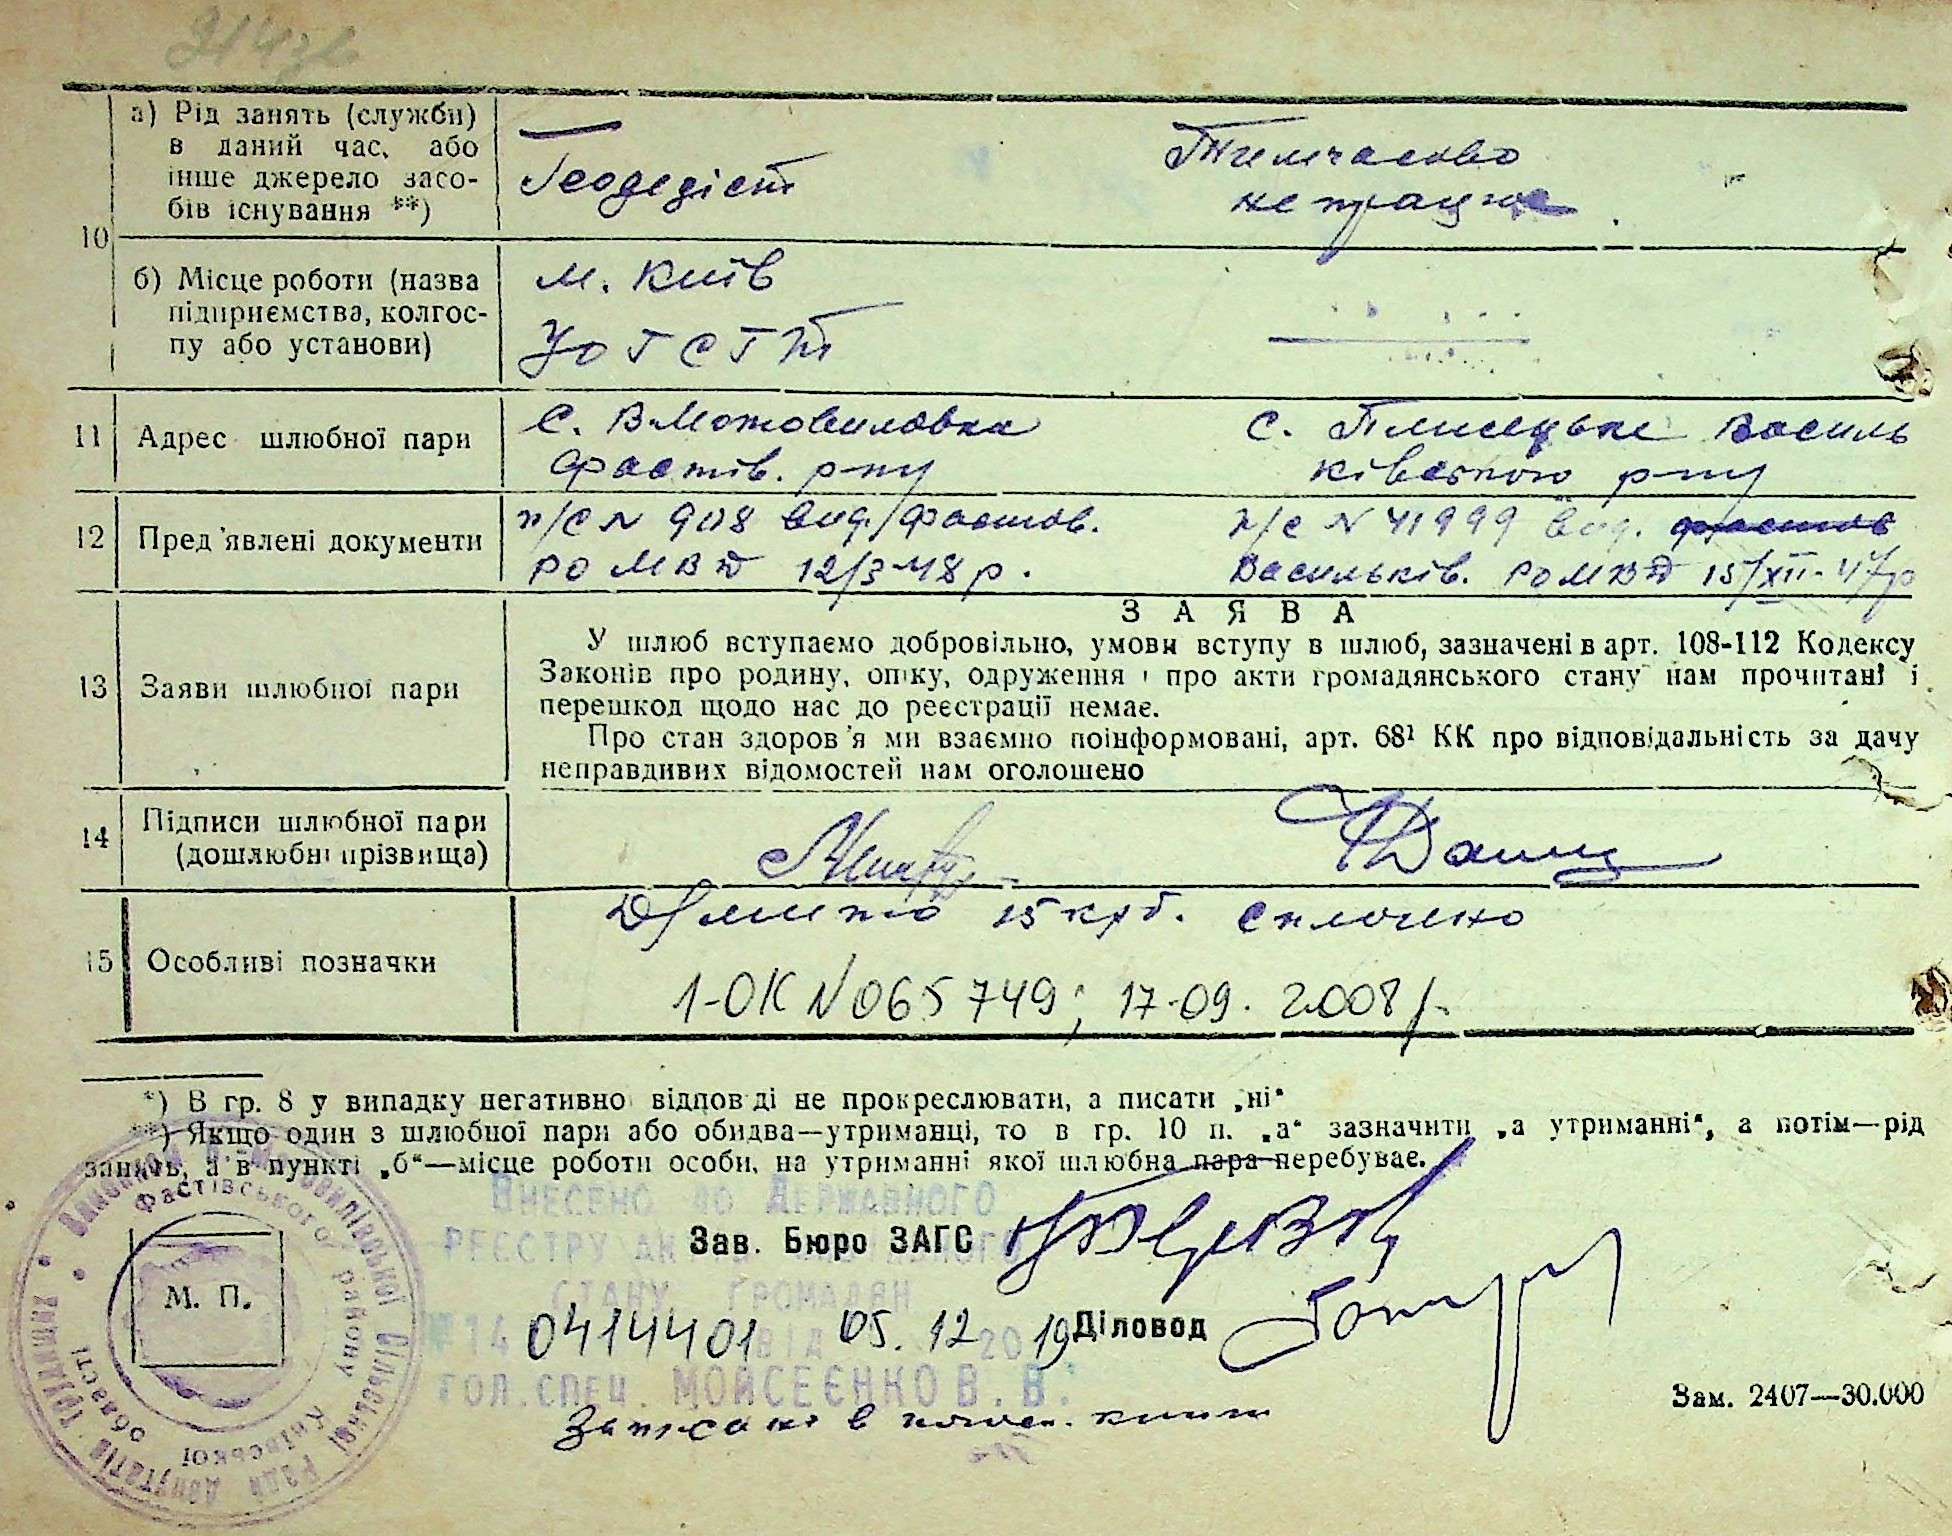 314зв
10
а) Рід занять (служби)
в даний час, або
інше джерело засо-
бів існування **)
Геодедіст
Тимчасово
не працює.
б) Місце роботи (назва
підприємства, колгос-
пу або установи)
м. Київ
11 Адрес шлюбної пари
С. В Мотовиловка
Фастів. р-ну
с. Плисецьке Василь
ківського р-ну
12 Пред'явлені документи
п/с N 908 вид. Фастов.
РО МВД 12/3-48 р.
п/с N 41999 вид. фастов
Васильків. РО МВД 15/XII-47р
13 Заяви шлюбної пари
ЗАЯВА
У шлюб вступаємо добровільно, умови вступу в шлюб, зазначені в арт. 108-112 Кодексу
Законів про родину, опіку, одруження і про акти громадянського стану нам прочитані і
перешкод щодо нас до реєстрації немає.
Про стан здоров'я ми взаємно поінформовані, арт. 68¹ КК про відповідальність за дачу
неправдивих відомостей нам оголошено
14 Підписи шлюбної пари
(дошлюбні прізвища)
15 Особливі позначки
15 крб. сплочено
1-ОК N 065749; 17-09. 2008р.
*) В гр. 8 у випадку негативної відповіді не прокреслювати, а писати „ні“
**) Якщо один з шлюбної пари або обидва—утриманці, то в гр. 10 п. „а“ зазначити „а утриманні“, а потім—рід
занять, а в пункті „б“—місце роботи особи, на утриманні якої шлюбна пара перебуває.
Внесено до Державного
Зав. Бюро ЗАГС
реєстру актів цивільного
стану громадян
М. П.
№ 14 0414401 від 05. 12 2019
Діловод
гол. спец. Мойсеєнко В. В.
Зам. 2407—30.000
Записані в книги
Мотовилівської сільської ради депутатів трудящих
Фастівського району Київської області